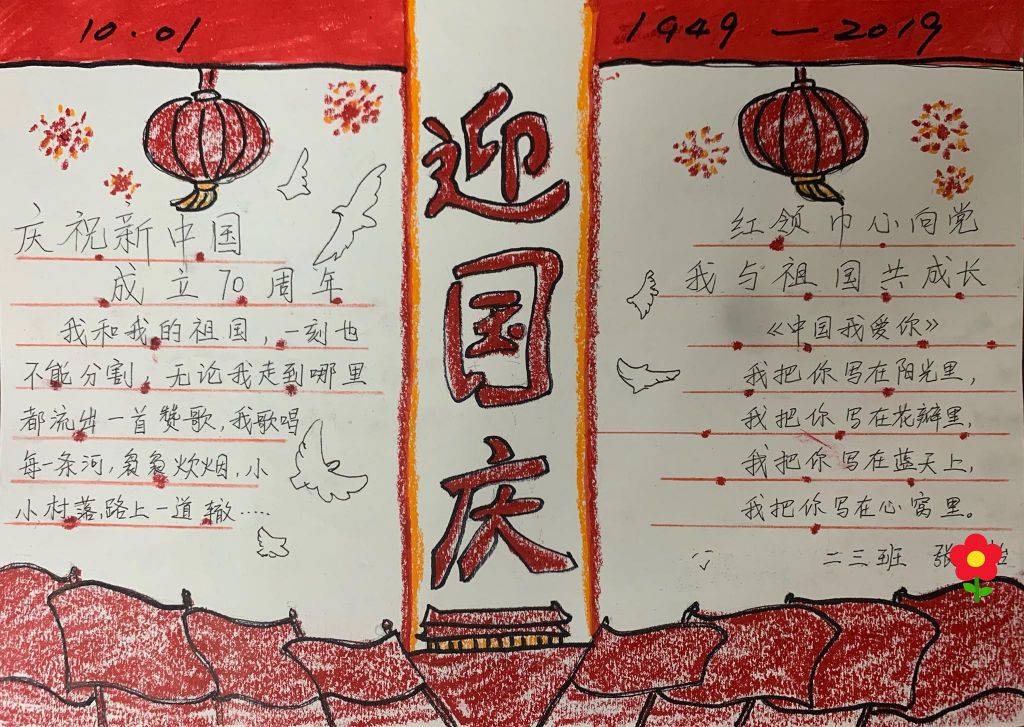 10.01
庆祝新中国
成立70周年
我和我的祖国，一刻也
不能分割，无论我走到哪里
都流出一首赞歌，我歌唱
每一条河，袅袅炊烟，小
小村落，路上一道辙……
迎国庆
1949—2019
红领巾心向党
我与祖国共成长
《中国我爱你》
我把你写在阳光里，
我把你写在花瓣里，
我把你写在蓝天上，
我把你写在心窝里。
二三班 张